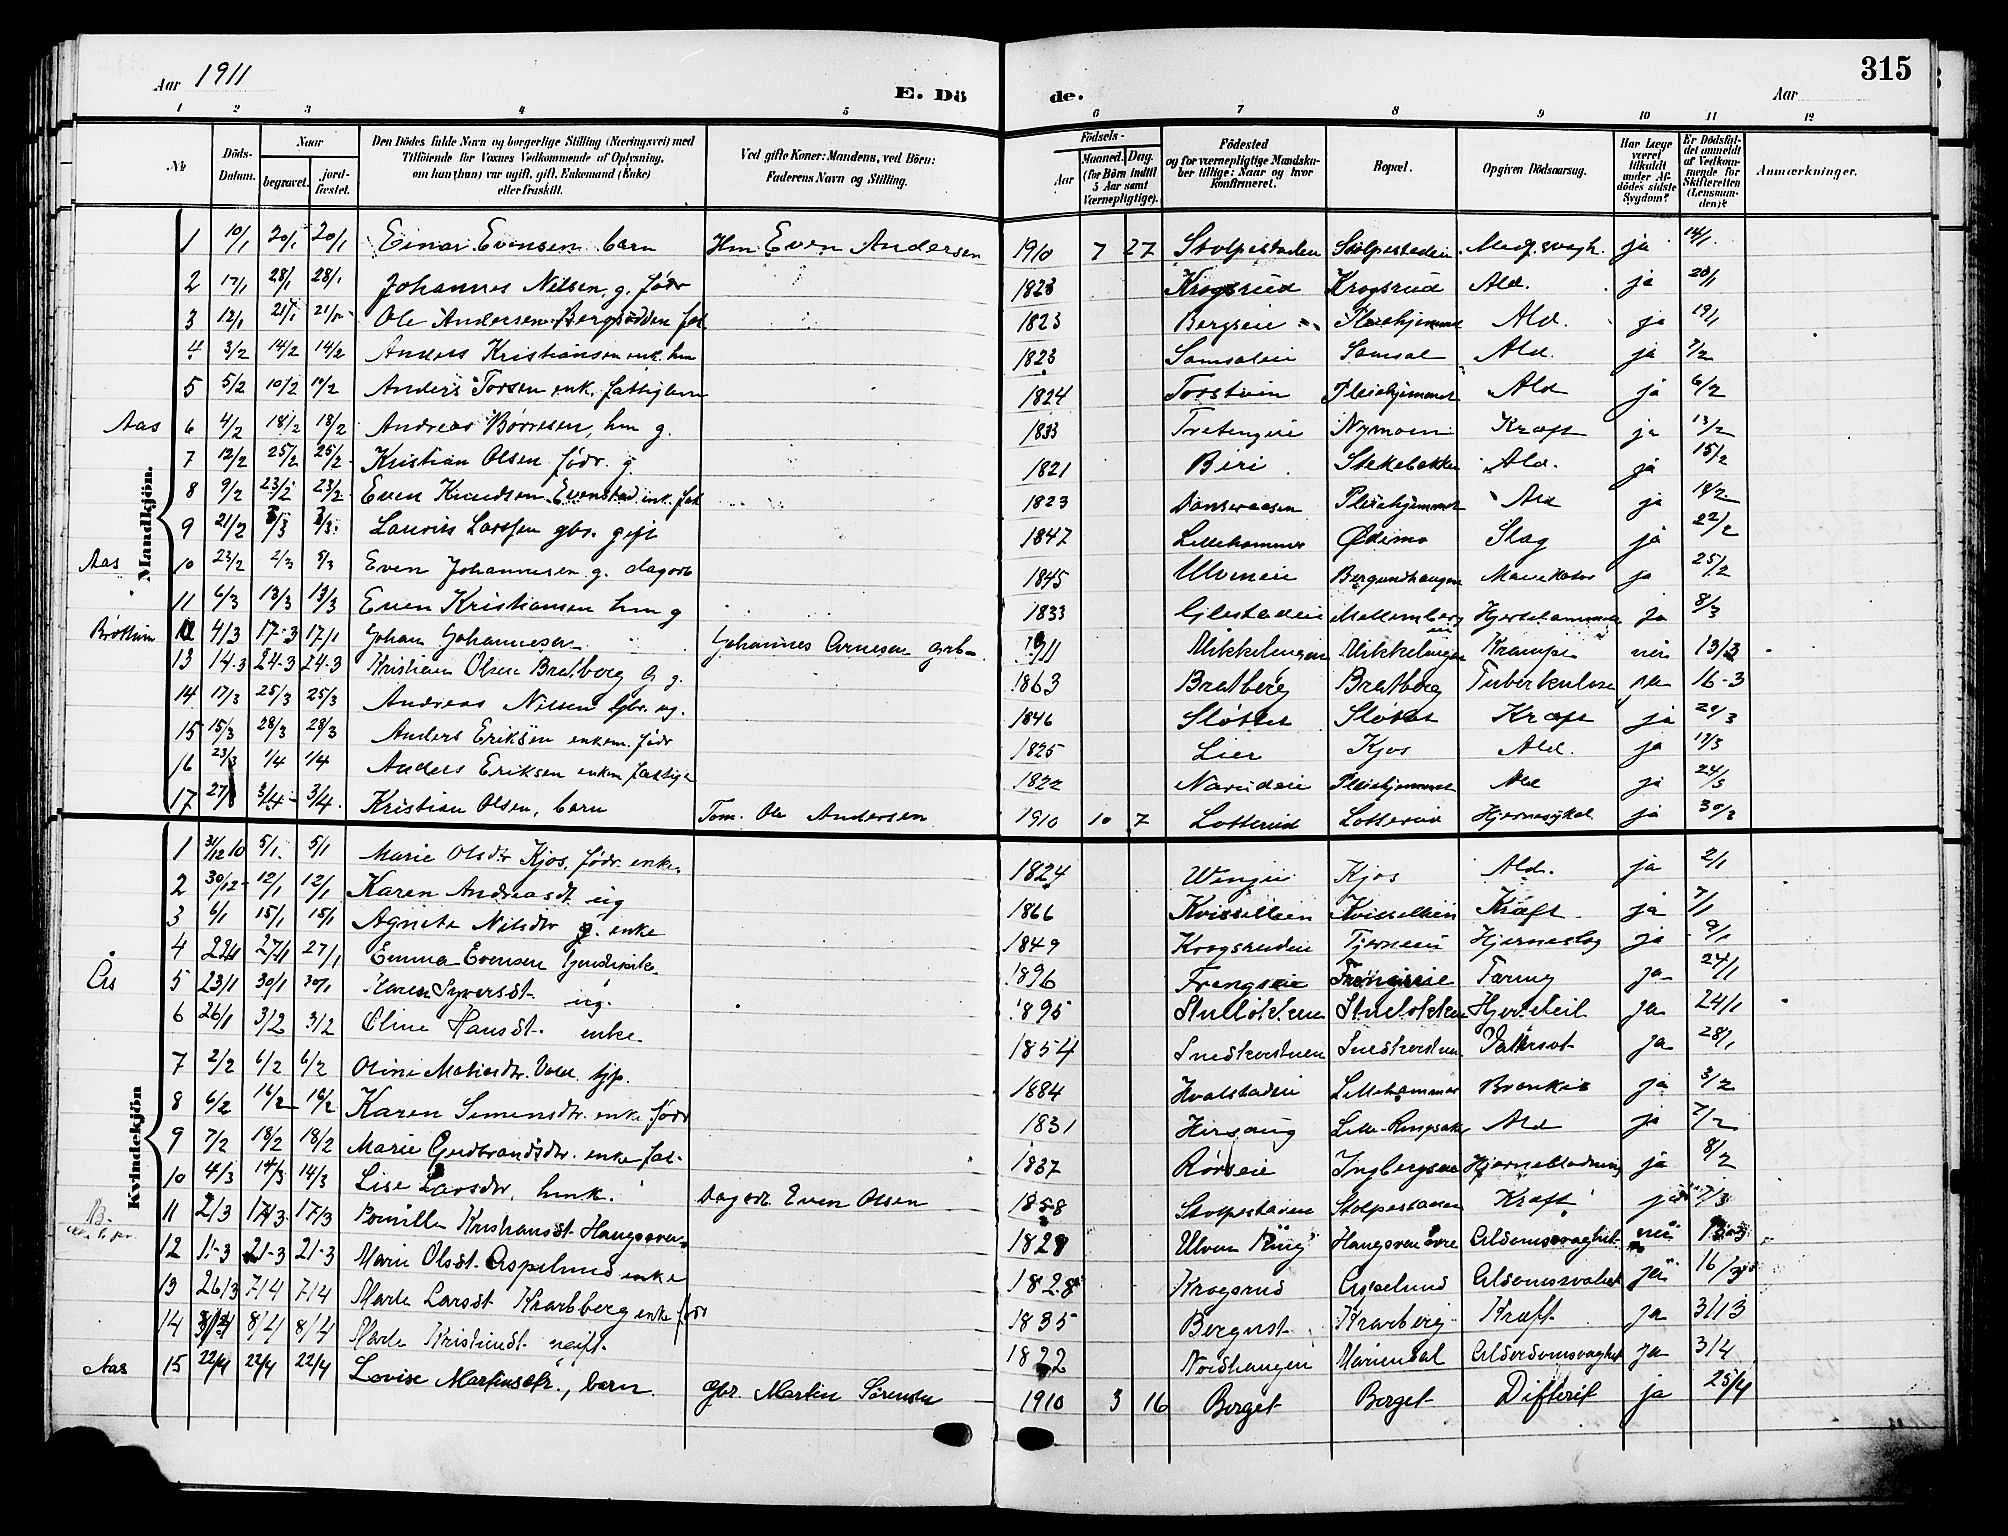 Aar 1911
E. Dö de.
315
Aar
1 2 3 4 5 6 7 8 9 10 11 12
№
Döds-Datum.
Naar
begravet.
jord-fæstet.
Den Dödes fulde Navn og borgerlige Stilling (Næringsvei) med
Tilföiende for Voxnes Vedkommende af Oplysning,
om han (hun) var ugift, gift, Enkemand (Enke)
eller fraskilt.
Ved gifte Koner: Mandens, ved Börn:
Faderens Navn og Stilling.
Födsels-
Aar
Maaned. Dag.
(for Börn indtil 5 Aar samt Værnepligtige).
Födested
og for værnepligtige Mandska-
ber tillige: Naar og hvor
konfirmeret.
Bopæl.
Opgiven Dödsaarsag.
Har Læge været tilkaldt under Af-dödes sidste Sygdom?
Er Dödsfal-det anmeldt af Vedkom-mende for Skifteretten (Lensman-den)?
Anmærkninger.
Mandkjön.
1 10/1 20/1 20/1 Einar Evensen barn Hm Even Andersen 1910 7 27 Stolpestaden Stolpestaden Medf. svagh. ja 14/1
2 17/1 28/1 28/1 Johannes Nilsen g. födr 1823 Krogsrud Krogsrud Ald. ja 20/1
3 12/1 21/1 21/1 Ole Andersen Bergsodden fat. 1823 Bergseie Pleiehjemmet Ald. ja 19/1
4 3/2 14/2 14/2 Anders Kristiansen enk. hm 1823 Samsaleie Samsal Ald. ja 7/2
5 5/2 10/2 10/2 Anders Torsen enk. fattiglem 1824 Torstvin Pleiehjemmet Ald ja 6/2
Aas 6 4/2 18/2 18/2 Andreas Börresen, hm g. 1833 Tretengeie Nymoen Kræft ja 13/2
7 12/2 25/2 25/2 Kristian Olsen födr. g. 1821 Biri Stekebakken Ald. ja 15/2
8 9/2 23/2 23/2 Even Knudsen Evenstad enk. fat 1823 Danseraasen Pleiehjemmet Ald ja 14/2
9 21/2 3/3 3/3 Laurits Larsen gbr. gift 1847 Lillehammer Ødemo Slag ja 22/2
Aas 10 23/2 2/3 5/3 Even Johannesen g. dagarb 1845 Ulveneie Bergundhaugen ja 25/2
11 6/3 13/3 13/3 Even Kristiansen hm g 1833 Gjestadeie Mellemberg eie ja 8/3
Bröttum 12 4/3 17-3 17/1 Johan Johannesen Johannes Arnesen 1911 Mikkelengen Mikkelengen Krampe nei 13/3
13 14-3 24-3 24-3 Kristian Olsen Bratberg G g. 1863 Bratberg Bratberg Tuberkulose ja 16-3
14 17/3 25/3 25/3 Andreas Nilsen Gbr. ug. 1846 Slöttet Slöttet Kræft ja 20/3
15 15/3 28/3 28/3 Anders Eriksen enkem. födr 1825 Lier Kjos Ald. ja 17/3
16 23/3 1/4 1/4 Anders Eriksen enkm fattigl 1822 Narudeie Pleiehjemmet Ald ja 24/3
17 27/3 3/4 3/4 Kristian Olsen, barn Tom. Ole Andersen 1910 10 7 Lotterud Lotterud Hjernesykd ja 30/3
Kvindekjön
1 31/12 10 5/1. 5/1 Marie Olsdtr Kjos, födr. enke. 1824 Wengeie Kjos Ald. ja 2/1
2 30/12 12/1 12/1 Karen Andreasdt ug 1866 Kvisselleien Kvisselleien Kræft ja 7/1
3 6/1 15/1 15/1 Agnete Nilsdtr g. enke 1849 Krogsrudeie Tjerneeie Hjerneslag ja 9/1
4 22/1 27/1 27/1 Emma Evensen 1896 Frengseie Frengseie Tæring ja 24/1
Ås 5 23/1 30/1 30/1 Karen Syversdt. ug. 1895 Stulökken Stulökken Hjertefeil ja 24/1
6 26/1 3/2 3/2 Oline Hansdt. enke. 1854 Snedkerstuen Snedkerstuen Vatersot ja 28/1
7 2/2 6/2 6/2 Oline Matiasdtr. Vold. tjp. 1884 Hvalstadeie Lillehammer Bronkit ja 3/2
8 6/2 16/2 16/2 Karen Simensdtr. enke födr 1831 Lille-Ringsaker Ald ja 7/2
9 7/2 18/2 18/2 Marie Gudbrandsdtr. enke fat- 1837 Rörseie Hjerneblödning ja 8/2
10 4/3 14/3 14/3 Lise Larsdtr, hmk. Dagarb. Even Olsen 1858 Stolpestaden Stolpestaden Kræft ja 7/3
B. 11 2/3 17/3 17/3 Pernille Kristiansdt Haugsveen 1828 Ulven Ring Haugsveen övre Alderdomssvaghet nei 13-3
12 11-3 21-3 21-3 Marie Olsdt. Aspelund enke 1828 Krogsrud Aspelund Alderdomssvakhet ja 16/3
13 26/3 7/4 7/4 Marte Larsdt Krarbberg enke födr 1835 Bergust Krarberg Kræft ja 31/3
14 8/4 8/4 Marte Kristiansdt ugift. 1822 Nordhaugen Mariendal Alderdomssvaghet ja 3/4
Aas 15 22/4 22/4 22/4 Lovise Martinsdtr., barn Gbr. Martin Sörensen 1910 3 16 Berget Berget Difterit ja 25/4